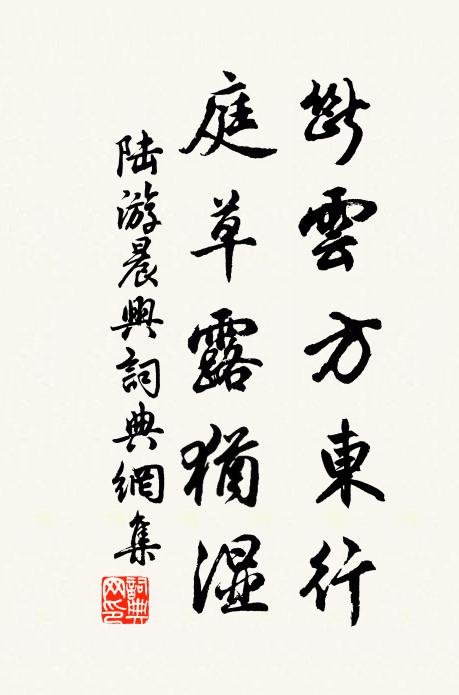 斷雲方東行
庭草露猶湿
陸游晨興詞典網集
詞典网印